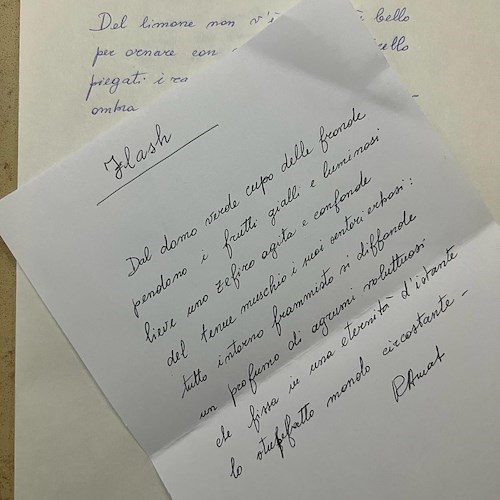 Del limone non v'è bello
per ornare con
piegati i
ombra
Flash
Dal damo verde cupo delle fronde
pendono i frutti gialli e luminosi
lieve uno zefiro agita e confonde
del tenue muschio i suoi sentori erbosi:
tutto intorno frammisto si diffonde
un profumo di agrumi voluttuosi
che fissa in una eternità d'istante
lo stupefatto mondo circostante -
RAmat